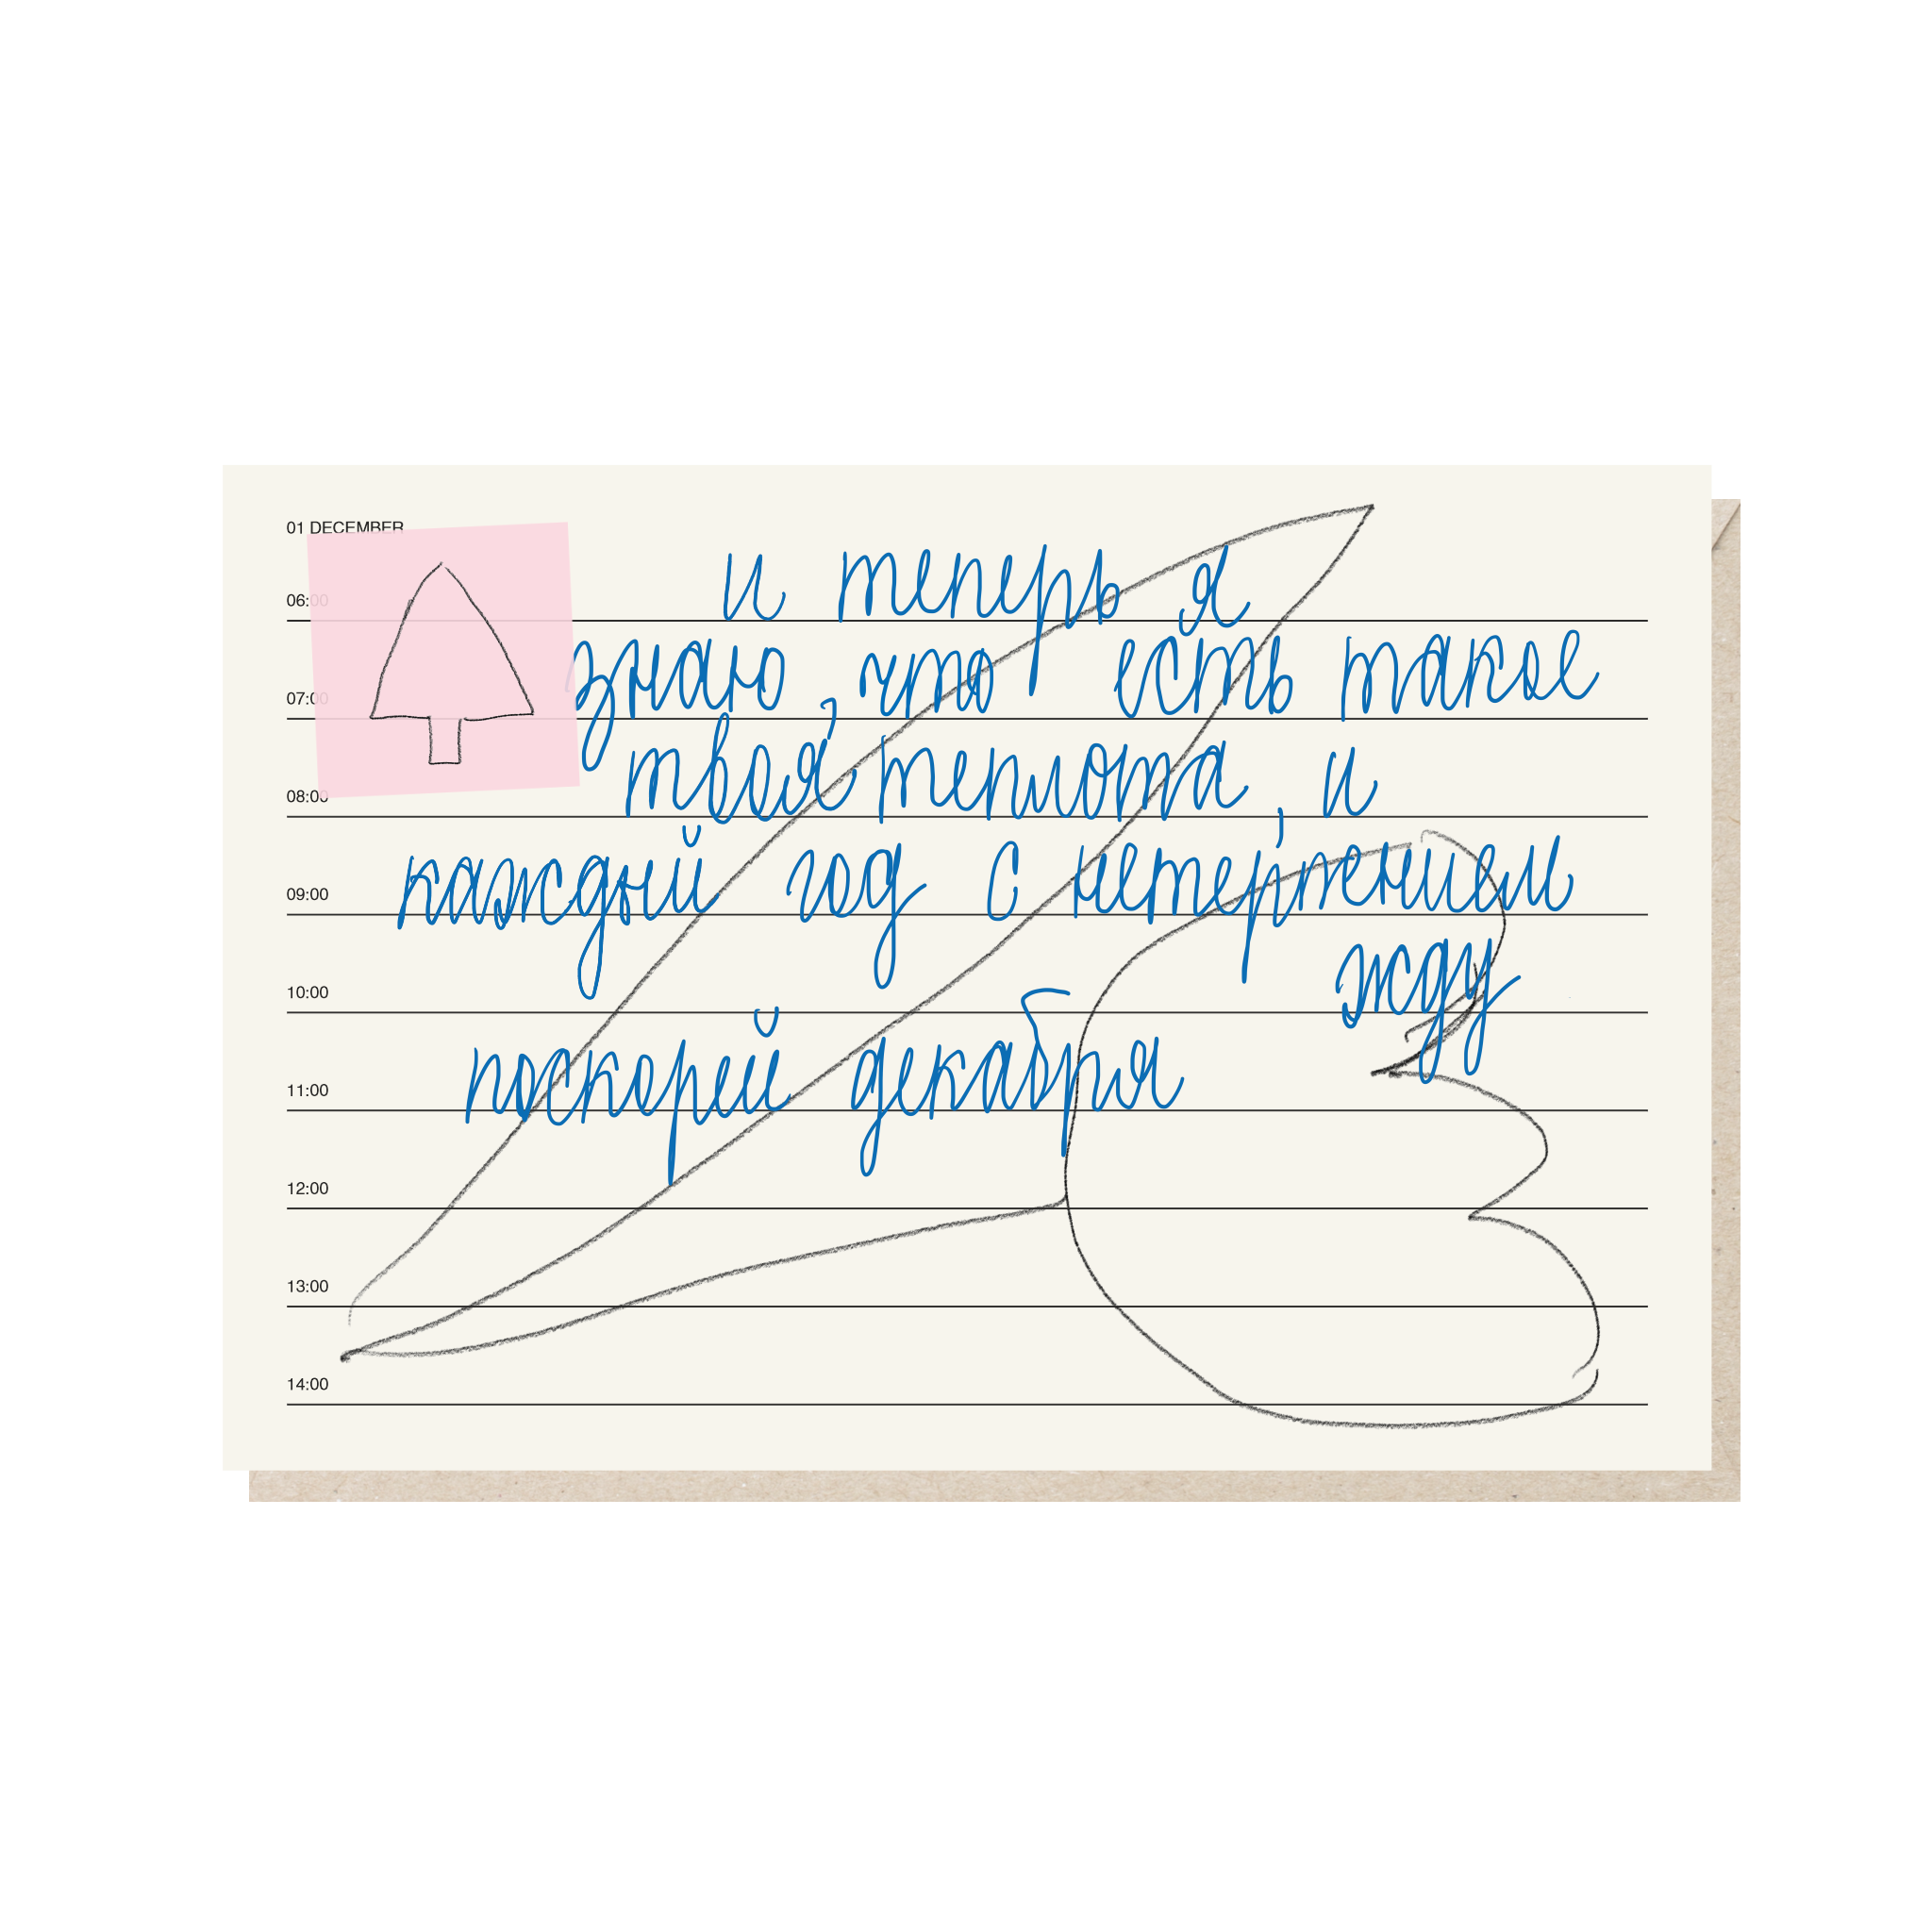 01 DECEMBER
06:00
и теперь я
07:00
знаю, что есть такое
08:00
твоя теплота, и
09:00
каждый год с нетерпением
10:00
жду
11:00
поскорей декабря
12:00
13:00
14:00